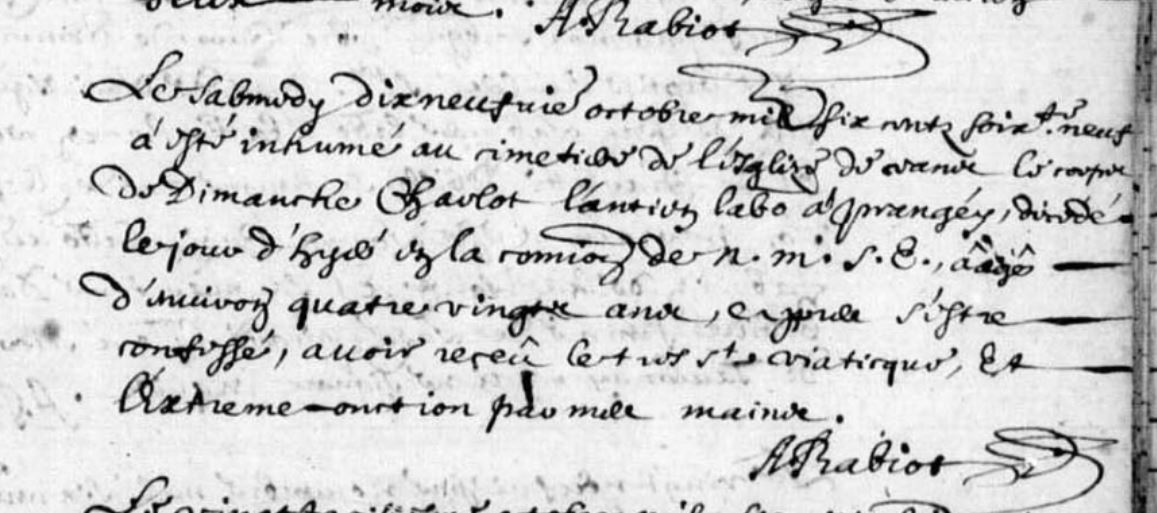 moys. A. Rabiot
Le sabmedy dixneufvie octobre mil six centz soixte neuf
a esté inhumé au cimetiere de l'esglize de ceans le corps
de Dimanche Charlot l'antien labo à prangey, décédé
le jour d'hyer en la comion de n. m. s. E., aâgé
d'environ quatre vingts ans, apres s'estre
confessé, avoir reçeû le tres st viaticque, Et
l'Extreme-onction par mes mains.
A. Rabiot